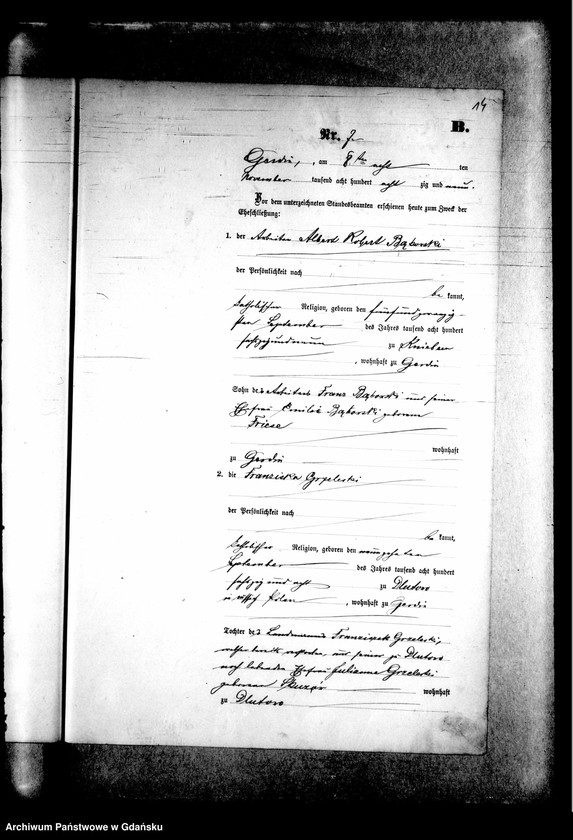 14
B.
Nr. 7
Gardin, am 8. ten acht ten
November tausend acht hundert acht zig und neun.
Vor dem unterzeichneten Standesbeamten erschienen heute zum Zweck der
Eheschließung:
1. der Arbeiter Albert Robert Bąkowski
der Persönlichkeit nach
be kannt,
katholischer Religion, geboren den fünfundzwanzig-
sten September des Jahres tausend acht hundert
zu
, wohnhaft zu Gardin
Sohn des Arbeiters Franz Bąkowski und seiner
Ehefrau Emilie Bąkowski geborene
Friese
wohnhaft
zu Gardin
2. die Franziska Grzeleski
der Persönlichkeit nach
be kannt,
katholischer Religion, geboren den neunzehnten
September des Jahres tausend acht hundert
sechszig und acht zu Dlutowo
in russisch Polen, wohnhaft zu Gardin
Tochter des Landmanns Franziszek Grzeleski,
verstorben, und seiner zu Dlutowo
noch lebenden Ehefrau Julianna Grzeleski
geborenen wohnhaft
zu Dlutowo
Archiwum Państwowe w Gdańsku